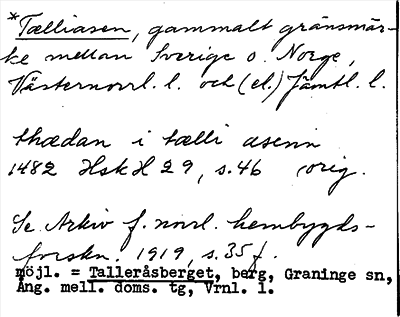 *Tælliasen, gammalt gränsmär-
ke mellan Sverige o. Norge,
Västernorrl. l. och (el.) Jämtl. l.
thædan i tælli asenn
1482 HskH 29, s. 46 orig.
Se Arkiv f. norrl. hembygds-
forskn. 1919, s. 35 f.
möjl. = Talleråsberget, berg, Graninge sn,
Ång. mell. doms. tg, Vrnl. l.